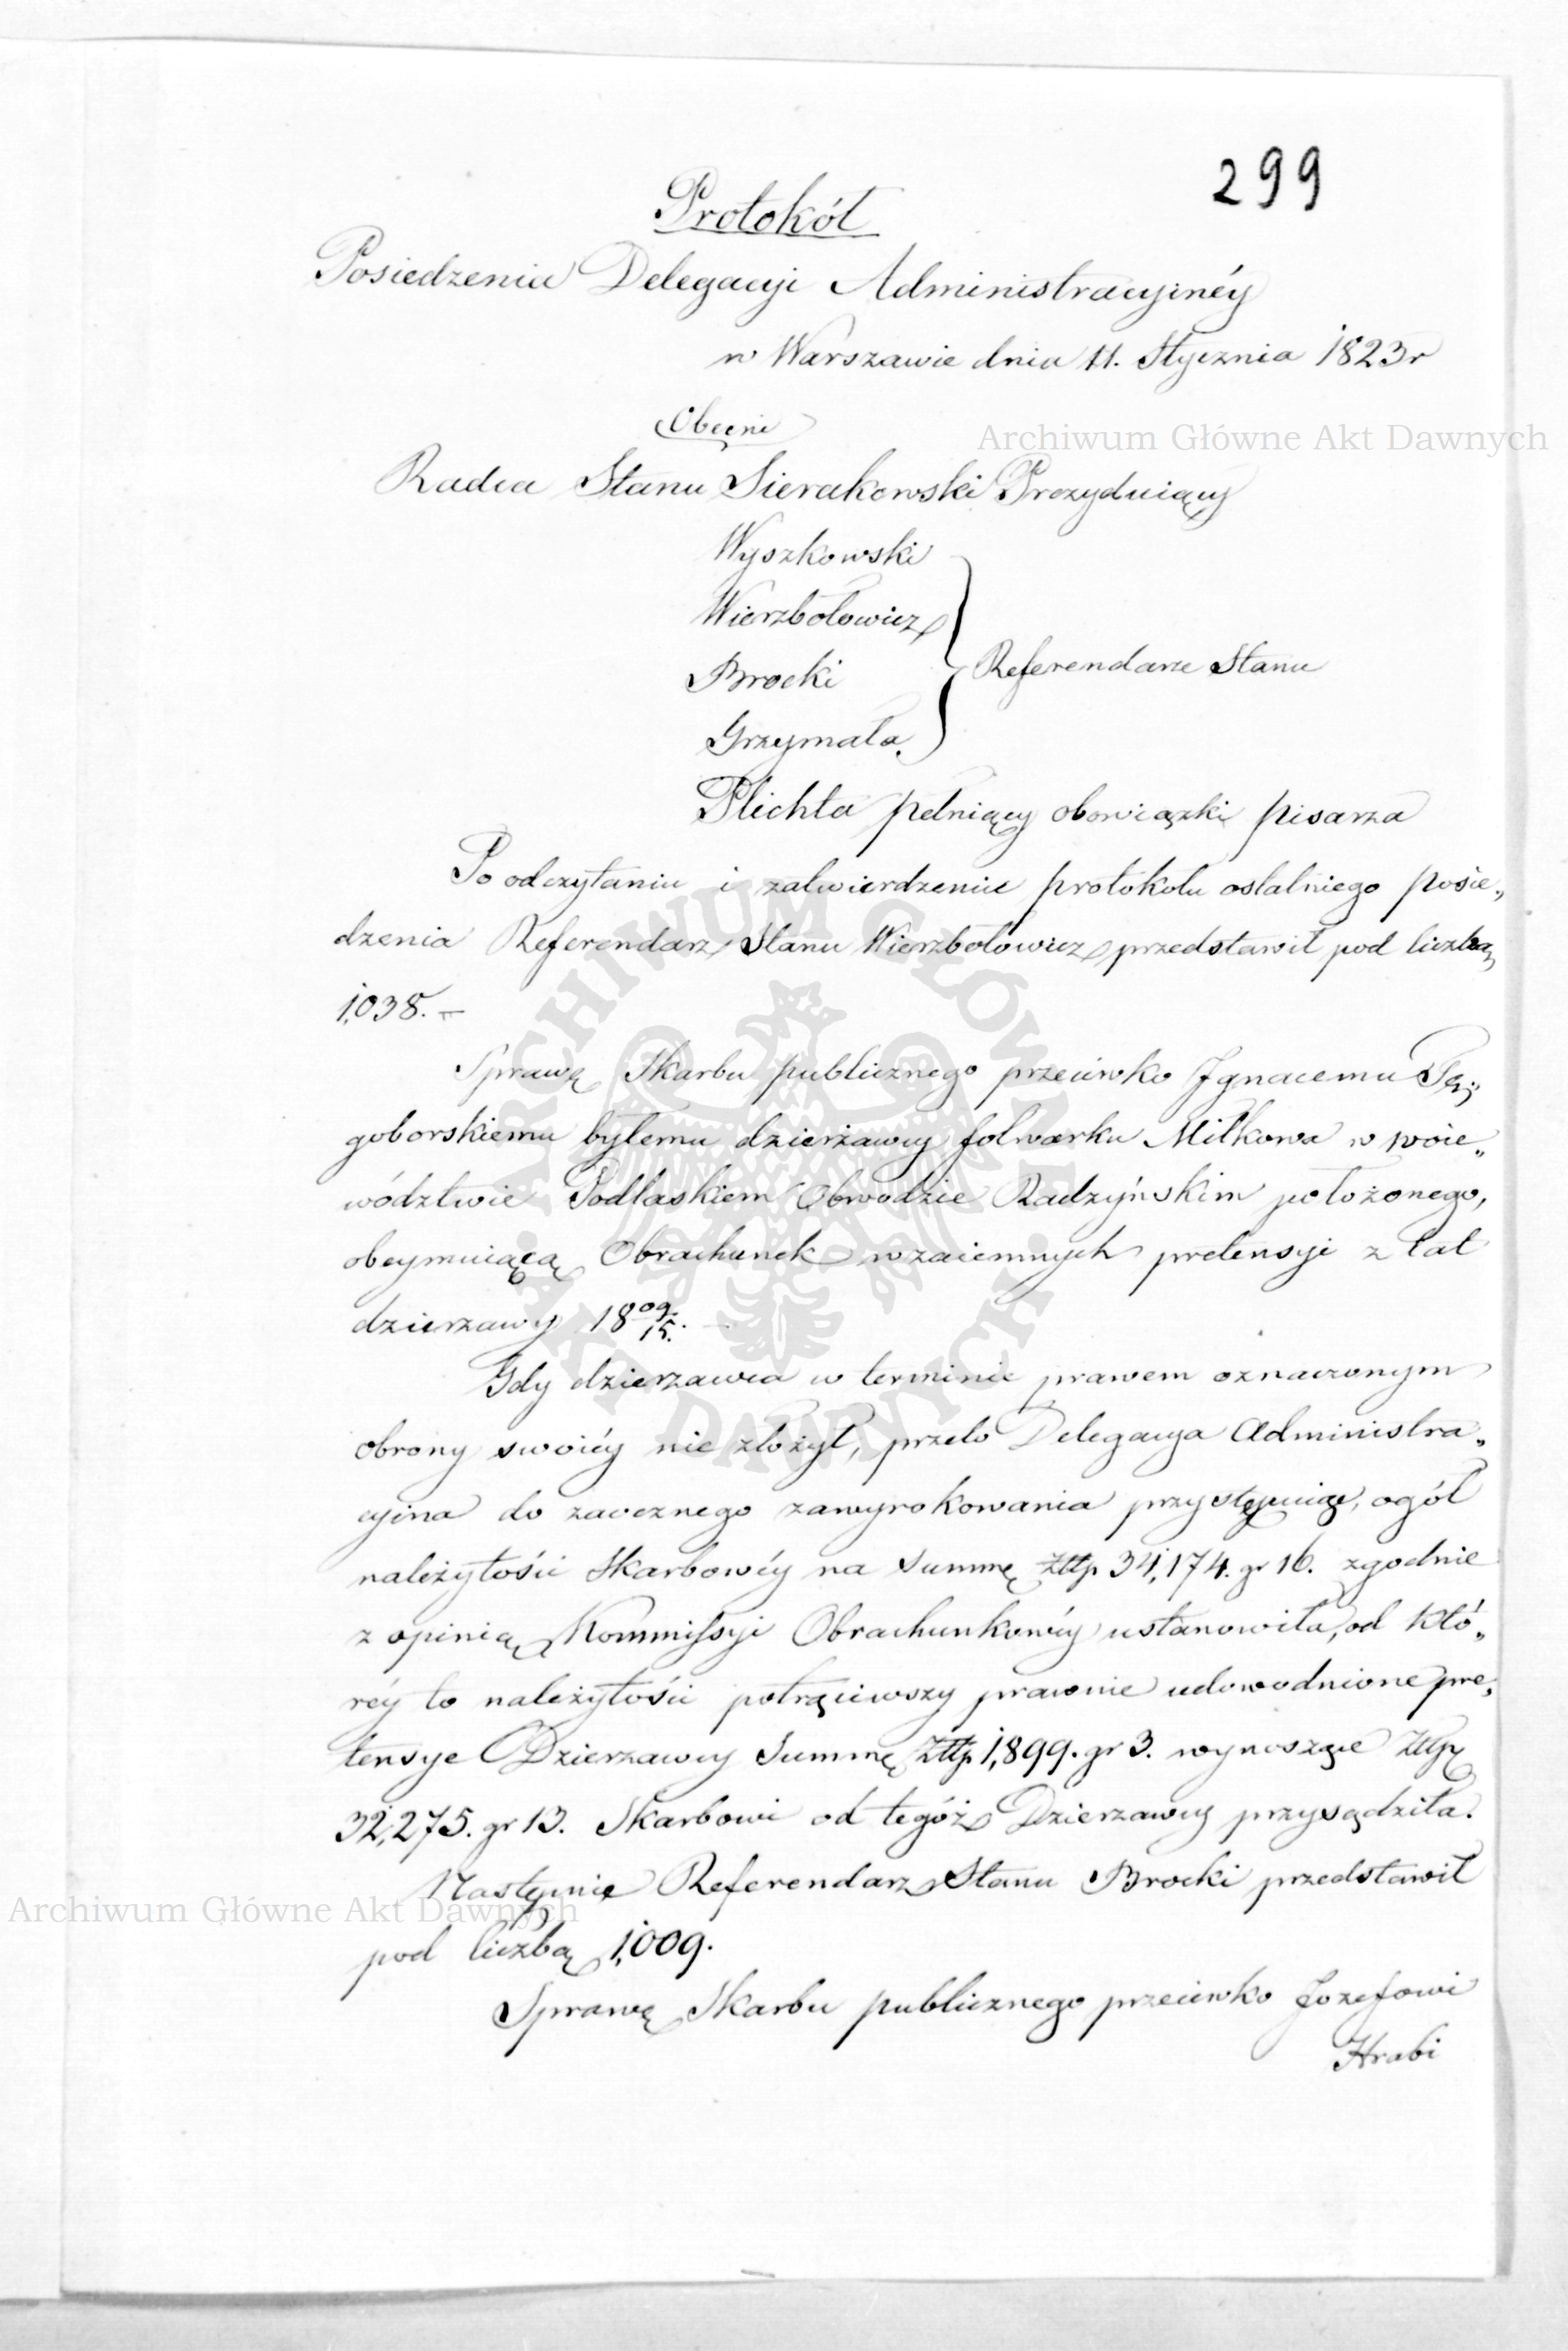 299
Protokół
Posiedzenia Delegacyi Administracyinéy
w Warszawie dnia 11. Stycznia 1823r
Obecni
Archiwum Główne Akt Dawnych
Radca Stanu Sierakowski Prezyduiący
Wyszkowski
Wierzbołowicz
Brocki
Grzymała.
Referendarze Stanu
Plichta pełniący obowiązki pisarza
Po odczytaniu i zatwierdzeniu protokołu ostatniego posie„
dzenia Referendarz Stanu Wierzbołowicz przedstawił pod liczbą
1,038. –
Sprawę Skarbu publicznego przeciwko Ignacemu Tę„
goborskiemu byłemu dzierżawcy folwarku Miłkowa w woie„
wództwie Podlaskiem Obwodzie Radzyńskim położonego,
obeymuiącą Obrachunek wzaiemnych pretensyi z lat
dzierzawy 18 09/15. –
Gdy dzierzawca w terminie prawem oznaczonym
obrony swoiéy nie złożył, przeto Delegacya Administra„
cyina do zaocznego zawyrokowania przystępuiąc, ogół
należytości Skarbowéy na Summę Złłp 34,174. gr 16. zgodnie
z opinią Kommissyi Obrachunkowéy ustanowiła, od któ„
réy to należytości potrąciwszy prawnie udowodnione pre„
tensye Dzierzawcy Summę Złłp. 1,899. gr 3. wynoszące Złłp
32,275. gr 13. Skarbowi od tegóż Dzierzawcy przysądziła.
Następnie Referendarz Stanu Brocki przedstawił
Archiwum Główne Akt Dawnych
pod liczbą 1,009.
Sprawę Skarbu publicznego przeciwko Jozefowi
Hrabi
ARCHIWUM GŁÓWNE AKT DAWNYCH